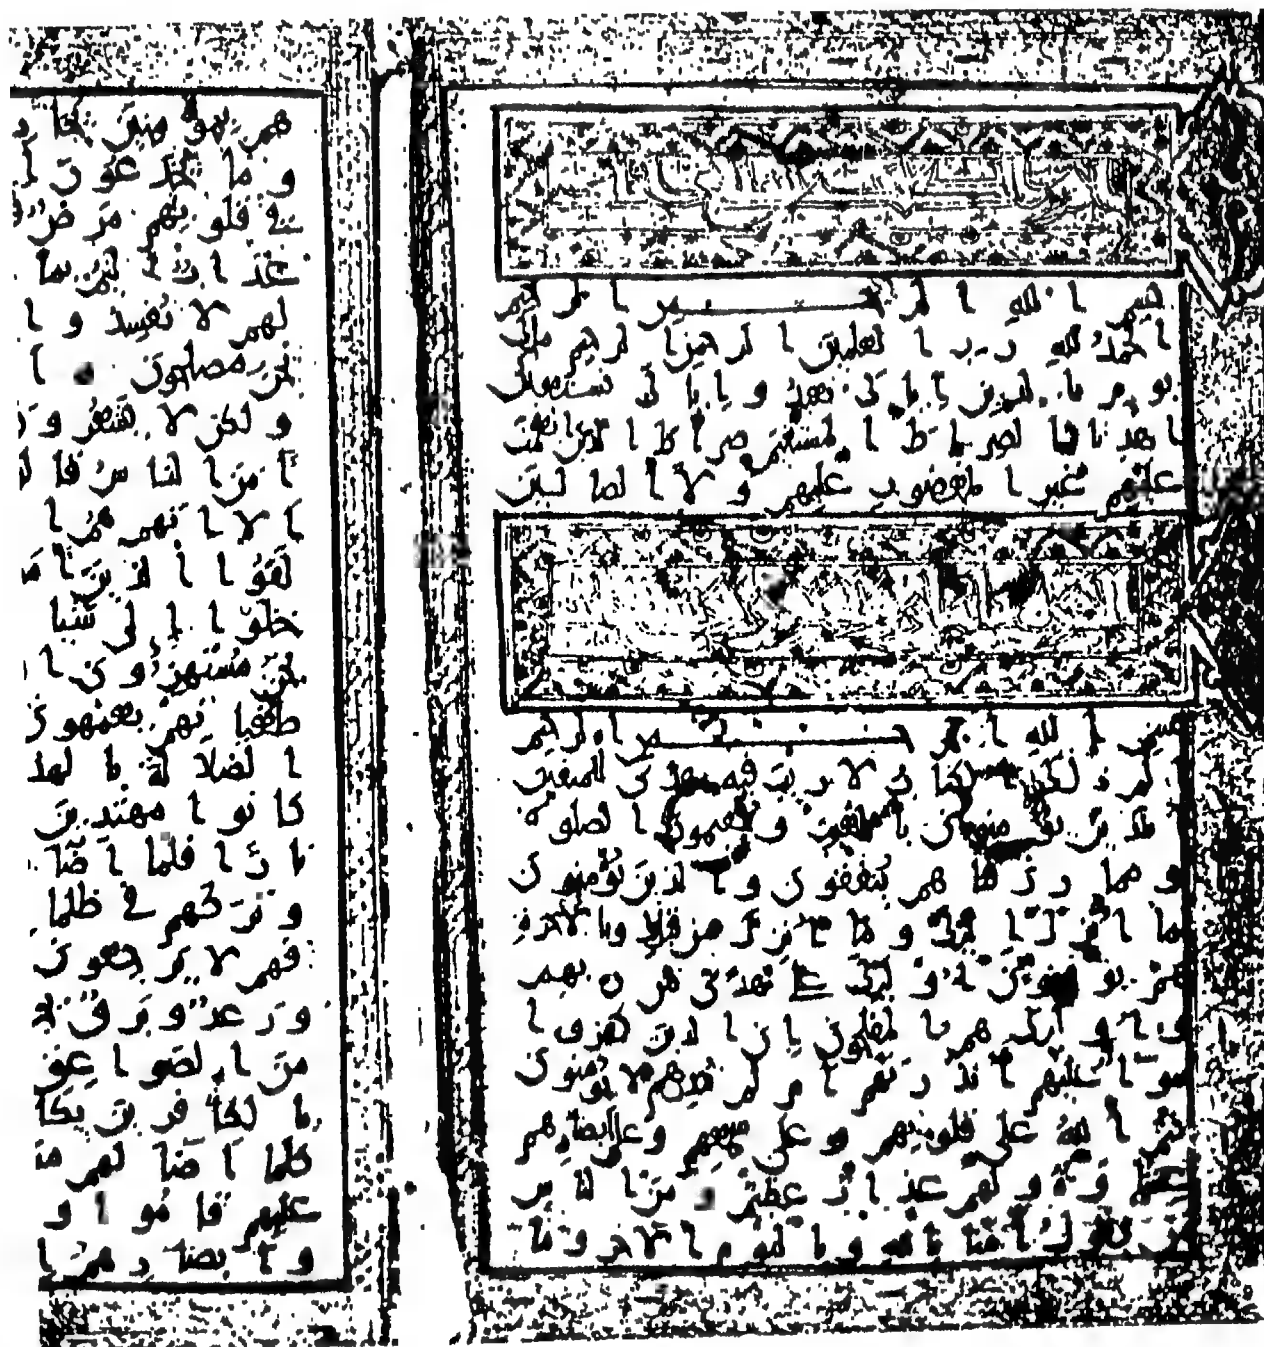 بسم ا لله ا لر حـــــمـن ا لر حيم
ا لحمد لله ر ب ا لعلمين ا لر حمن ا لر حيم ملك
يو م ا لد ين ا يا ك نعبد و ا يا ك نستعين
ا هد نا ا لصر ا ط ا لمستقيم صر ا ط ا لذ ين ا نعمت
عليهم غير ا لمغضو ب عليهم و لا ا لضا لين
بسم ا لله ا لر حـــــمـن ا لر حيم
ا لم ذ لك ا لكتا ب لا ر يب فيه هد ى للمتقين
ا لذ ين يؤ منو ن با لغيب و يقيمو ن ا لصلو ة
و مما ر ز قنا هم ينفقو ن و ا لذ ين يؤ منو ن
بما ا نز ل ا ليك و ما ا نز ل من قبلك و با لا خر ة
هم يو قنو ن ا و لئك على هد ى من ر بهم
و ا و لئك هم ا لمفلحو ن ا ن ا لذ ين كفر و ا
سو ا عليهم ا نذ ر تهم ا م لم تنذ ر هم لا يؤ منو ن
ختم ا لله على قلو بهم و على سمعهم و على ا بصا ر هم
غشو ة و لهم عذ ا ب عظيم و من ا لنا س
من يقو ل ا منا با لله و با ليو م ا لا خر و ما
هم بمؤ منين يخا د
و ما يخد عو ن ا
في قلو بهم مر ض
عذ ا ب ا ليم بما
لهم لا تفسد و ا
نحن مصلحو ن ا
و لكن لا يشعر و ن
ا من ا لنا س قا لو
ا لا ا نهم هم ا
لقو ا ا لذ ين ا من
خلو ا ا لى شيا
نحن مستهز ؤ ن ا
طغيا نهم يعمهو ن
ا لضلا لة با لهد
كا نو ا مهتد ين
نا ر ا فلما ا ضا
و تر كهم في ظلما
فهم لا ير جعو ن
و ر عد و بر ق يجـ
من ا لصو ا عق
با لكا فر ين يكا
كلما ا ضا لهم مشـ
عليهم قا مو ا و
و ا بصا ر هم ا